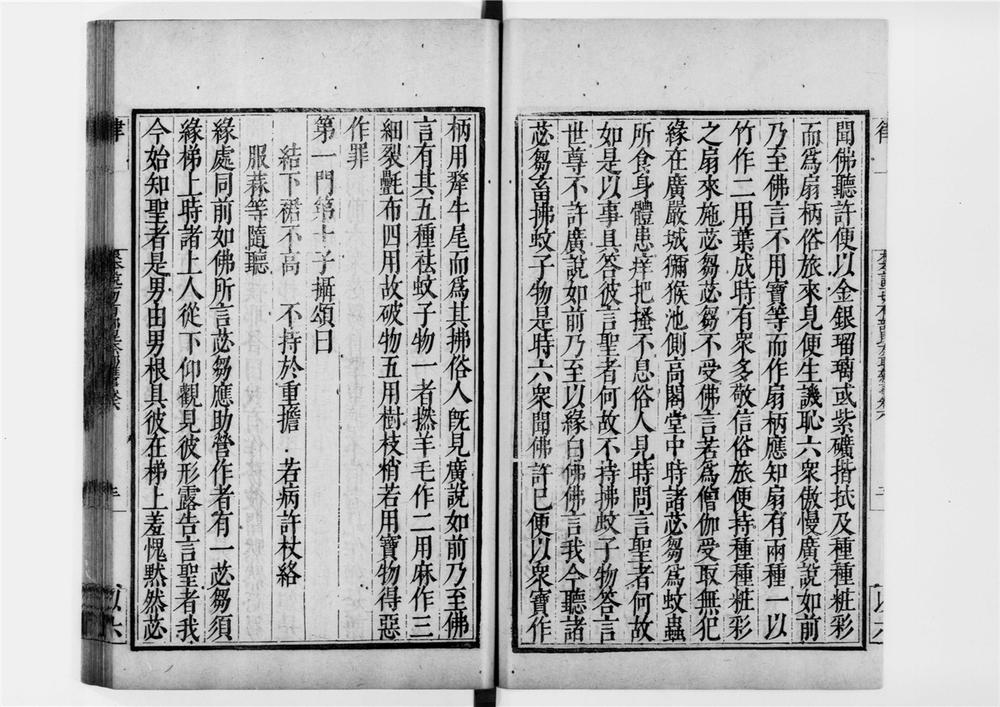 聞佛聽許便以金銀瑠璃或紫礦揩拭及種種粧彩
而爲扇柄俗旅來見便生譏恥六衆傲慢廣說如前
乃至佛言不用寶等而作扇柄應知扇有兩種一以
竹作二用葉成時有衆多敬信俗旅便持種種粧彩
之扇來施苾芻苾芻不受佛言若爲僧伽受取無犯
緣在廣嚴城獼猴池側高閣堂中時諸苾芻爲蚊蟲
所食身體患痒把搔不息俗人見時問言聖者何故
如是以事具答彼言聖者何故不持拂蚊子物答言
世尊不許廣說如前乃至以緣白佛佛言我今聽諸
苾芻畜拂蚊子物是時六衆聞佛許已便以衆寶作
柄用犛牛尾而爲其拂俗人旣見廣說如前乃至佛
言有其五種祛蚊子物一者撚羊毛作二用麻作三
細裂㲲布四用故破物五用樹枝梢若用寶物得惡
作罪
第一門第十子攝頌曰
結下裙不高　不持於重擔　若病許杖絡
服蒜等隨聽
緣處同前如佛所言苾芻應助營作者有一苾芻須
緣梯上時諸上人從下仰觀見彼形露告言聖者我
今始知聖者是男由男根具彼在梯上羞愧默然苾
律